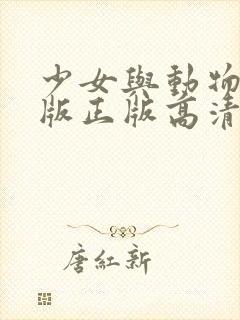 少女與動物
版正版高清
唐紅新